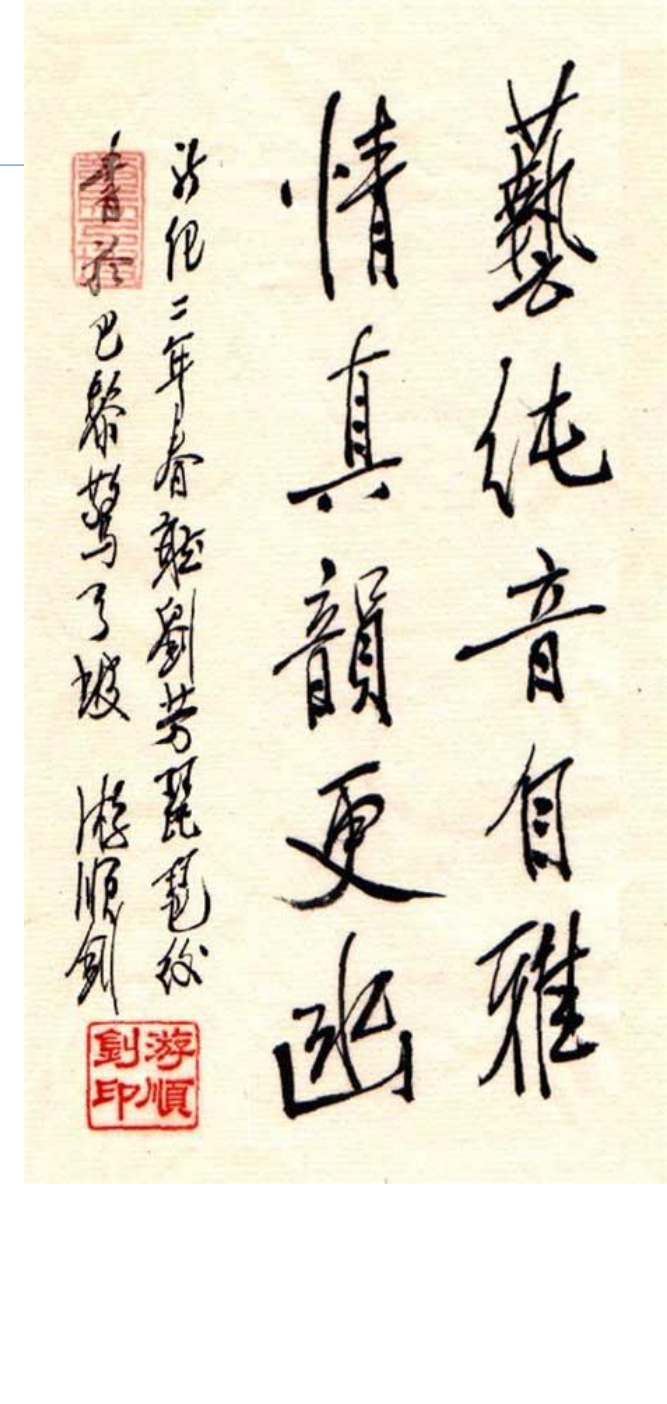 藝純音自雅
情真韻更幽
新纪二年春聽劉芳琵琶後
書於巴黎鶯弓坡 游順釗
游順釗印